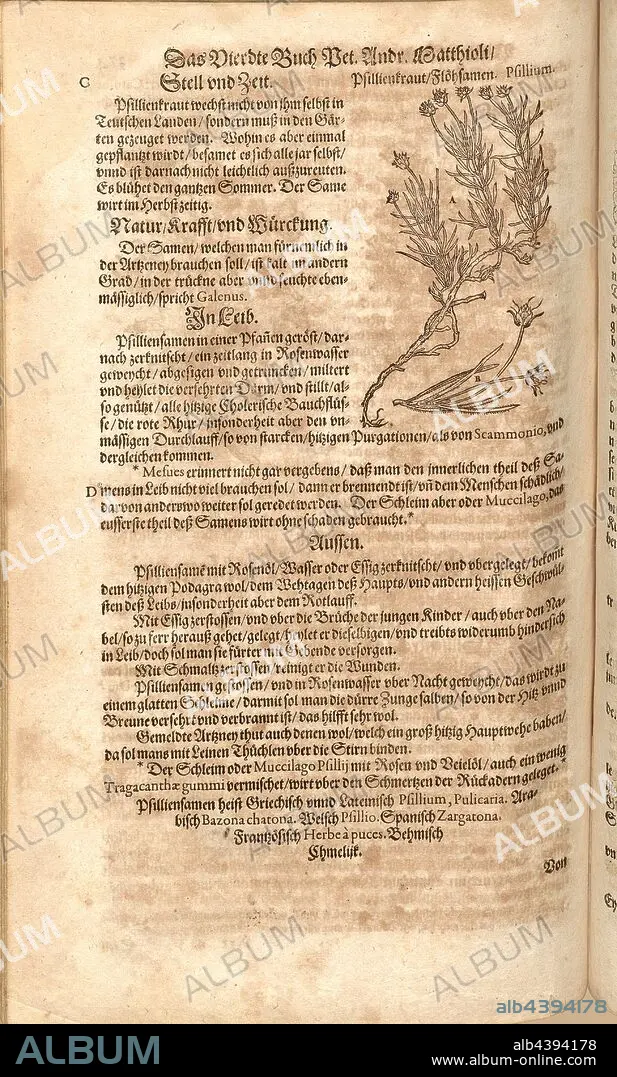 Das Vierdte Buch Pet. Andr. Matthioli/
C
Stell vnd Zeit.
Psillienkraut/Flöhsamen. Psillium.
Psillienkraut wechst nicht von jhm selbst in
Teutschen Landen/sondern muß in den Gär-
ten gezeuget werden. Wohin es aber einmal
gepflantzt wirdt/besamet es sich alle jar selbst/
vnnd ist darnach nicht leichtlich außzureuten.
Es blühet den gantzen Sommer. Der Same
wirt im Herbst zeitig.
Natur/Krafft/vnd Würckung.
Der Samen/welchen man fürnemlich in
der Artzeney brauchen soll/ist kalt im andern
Grad/in der trückne aber vnnd feuchte eben-
mässiglich/spricht Galenus.
In Leib.
Psilliensamen in einer Pfañen geröst/dar-
nach zerknitscht/ein zeitlang in Rosenwasser
geweycht/abgesigen vnd getruncken/miltert
vnd heylet die versehrten Därm/vnd stillt/al-
so genützt/alle hitzige Cholerische Bauchflüs-
se/die rote Rhur/insonderheit aber den vn-
mässigen Durchlauff/so von starcken/hitzigen Purgationen/als von Scammonio, vnd
dergleichen kommen.
A
B
* Mesues erinnert nicht gar vergebens/daß man den innerlichen theil deß Sa-
D
mens in Leib nicht viel brauchen sol/dann er brennendt ist/vñ dem Menschen schädlich/
darvon anderswo weiter sol geredet werden. Der Schleim aber oder Muccilago, das
eusserste theil deß Samens wirt ohne schaden gebraucht.*
Aussen.
Psilliensamẽ mit Rosenöl/Wasser oder Essig zerknitscht/vnd vbergelegt/bekomt
dem hitzigen Podagra wol/dem Wehtagen deß Haupts/vnd andern heissen Geschwül-
sten deß Leibs/insonderheit aber dem Rotlauff.
Mit Essig zerstossen/vnd vber die Brüche der jungen Kinder/auch vber den Na-
bel/so zu ferr herauß gehet/gelegt/heylet er dieselbigen/vnd treibts widerumb hindersich
in Leib/doch sol man sie fürter mit Gebende versorgen.
Mit Schmaltz zerstossen/reinigt er die Wunden.
Psilliensamen gestossen/vnd in Rosenwasser vber Nacht geweycht/das wirdt zu
einem glatten Schleime/darmit sol man die dürre Zunge salben/so von der Hitz vnnd
Breune versehrt vnd verbrannt ist/das hilfft sehr wol.
Gemeldte Artzney thut auch denen wol/welch ein groß hitzig Hauptwehe haben/
da sol mans mit Leinen Thüchlen vber die Stirn binden.
* Der Schleim oder Muccilago Psillij mit Rosen vnd Veielöl/auch ein wenig
Tragacanthæ gummi vermischet/wirt vber den Schmertzen der Rückadern geleget.*
Psilliensamen heist Griechisch vnnd Lateinisch Psillium, Pulicaria. Ara-
bisch Bazona chatona. Welsch Psillio. Spanisch Zargatona.
Frantzösisch Herbe à puces. Behmisch
Chmelijk.
Von
ALBUM
alb4394178
ALBUM
alb4394178
www.album-online.com